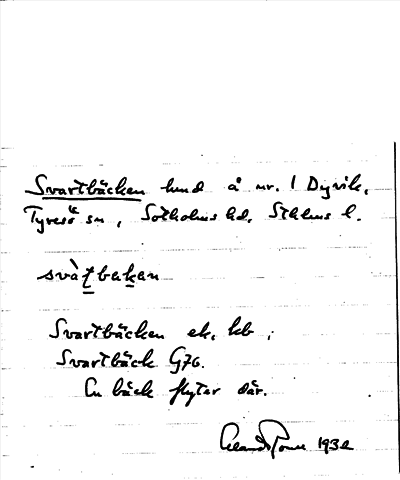 Svartbäcken lund å nr. 1 Dyvik,
Tyresö sn, Sotholms hd. Sthlms l.
svàtbakan
Svartbäcken ek, kb;
Svartbäck G76.
En bäck flyter där.
1932